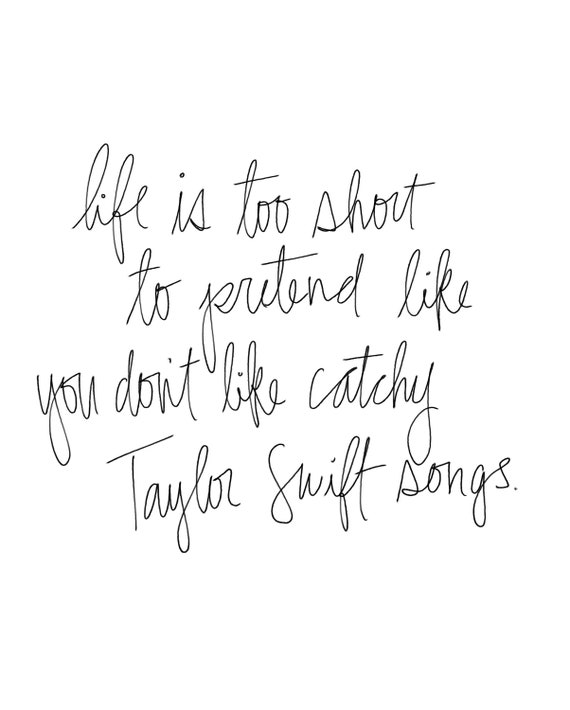 life is too short
to pretend like
you don't like catchy
Taylor Swift songs.